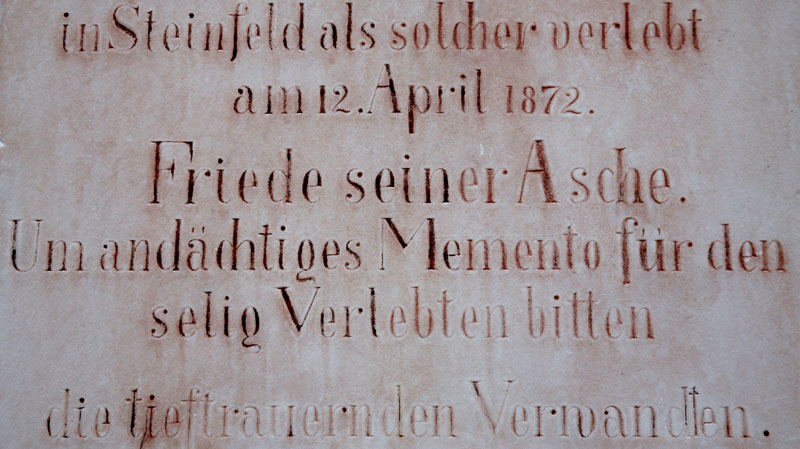 in Steinfeld als solcher verlebt
am 12. April 1872.
Friede seiner Asche.
Um andächtiges Memento für den
selig Verlebten bitten
die tieftrauernden Verwandten.